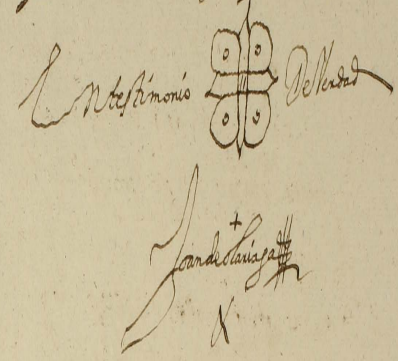 En testimonio De Verdad
Joan de Olariaga